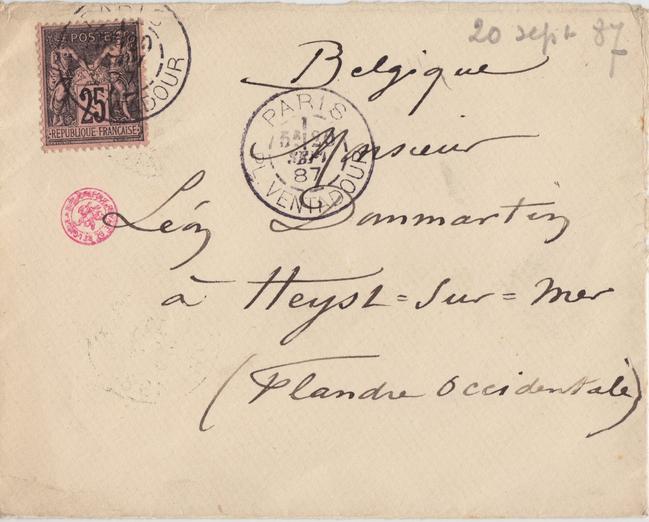 20 sept 87
POSTES
25
REPUBLIQUE FRANÇAISE
Belgique
PARIS
SEPT
87
PL. VENTADOUR
Monsieur
Léon Dommartin
à Heyst=sur=Mer
(Flandre Occidentale)